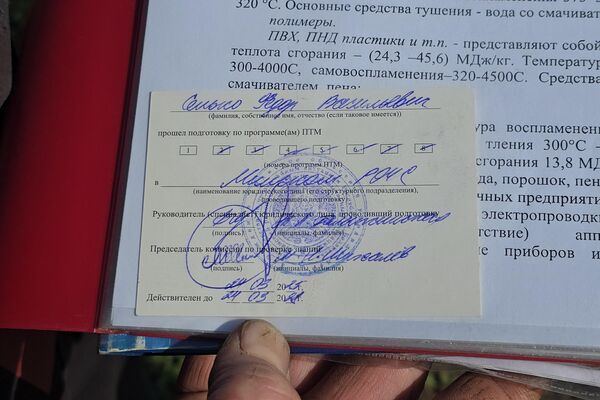 320 °C. Основные средства тушения - вода со смачиват
полимеры.
ПВХ, ПНД пластики и т.п. - представляют собой
теплота сгорания – (24,3 –45,6) МДж/кг. Температур
300-4000С, самовоспламенения–320-4500С. Средства
смачивателем, пена;
Федор Васильевич
(фамилия, собственное имя, отчество (если таковое имеется))
прошел подготовку по программе(ам) ПТМ
1 2 3 4 5 6 7 8
(номера программ ПТМ)
в РОЧС
(наименование юридического лица (его структурного подразделения),
проводившего подготовку)
Руководитель (специалист) юридического лица, проводивший подготовку
(подпись) (инициалы, фамилия)
Председатель комиссии по проверке знаний
(подпись) (инициалы, фамилия)
24 03 20
Действителен до 24 03 20
ура воспламенен
тления 300°С –
сгорания 13,8 М
да, порошок, пен
чных предприяти
электропроводк
тствие) апп
ие приборов и